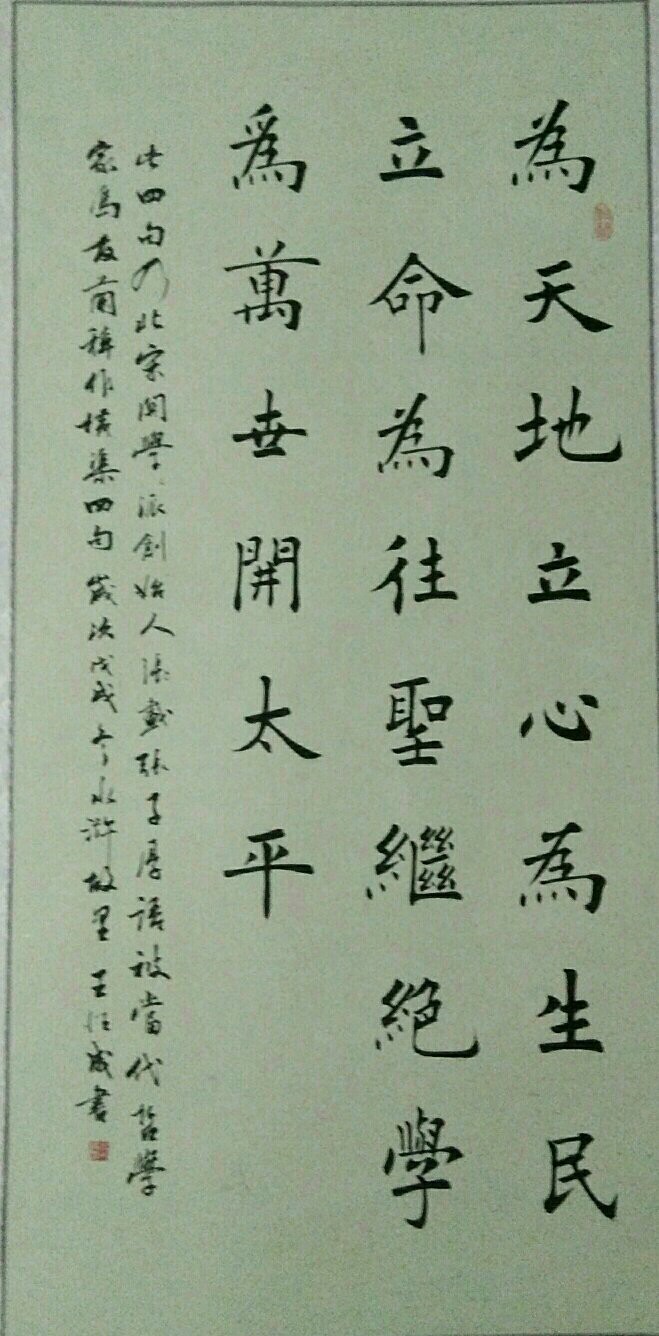 為天地立心為生民
立命為往聖繼絕學
爲萬世開太平
此四句乃北宋関學派創始人張載張子厚語被當代哲學
家馮友蘭稱作橫渠四句歲次戊戌冬水滸故里王書